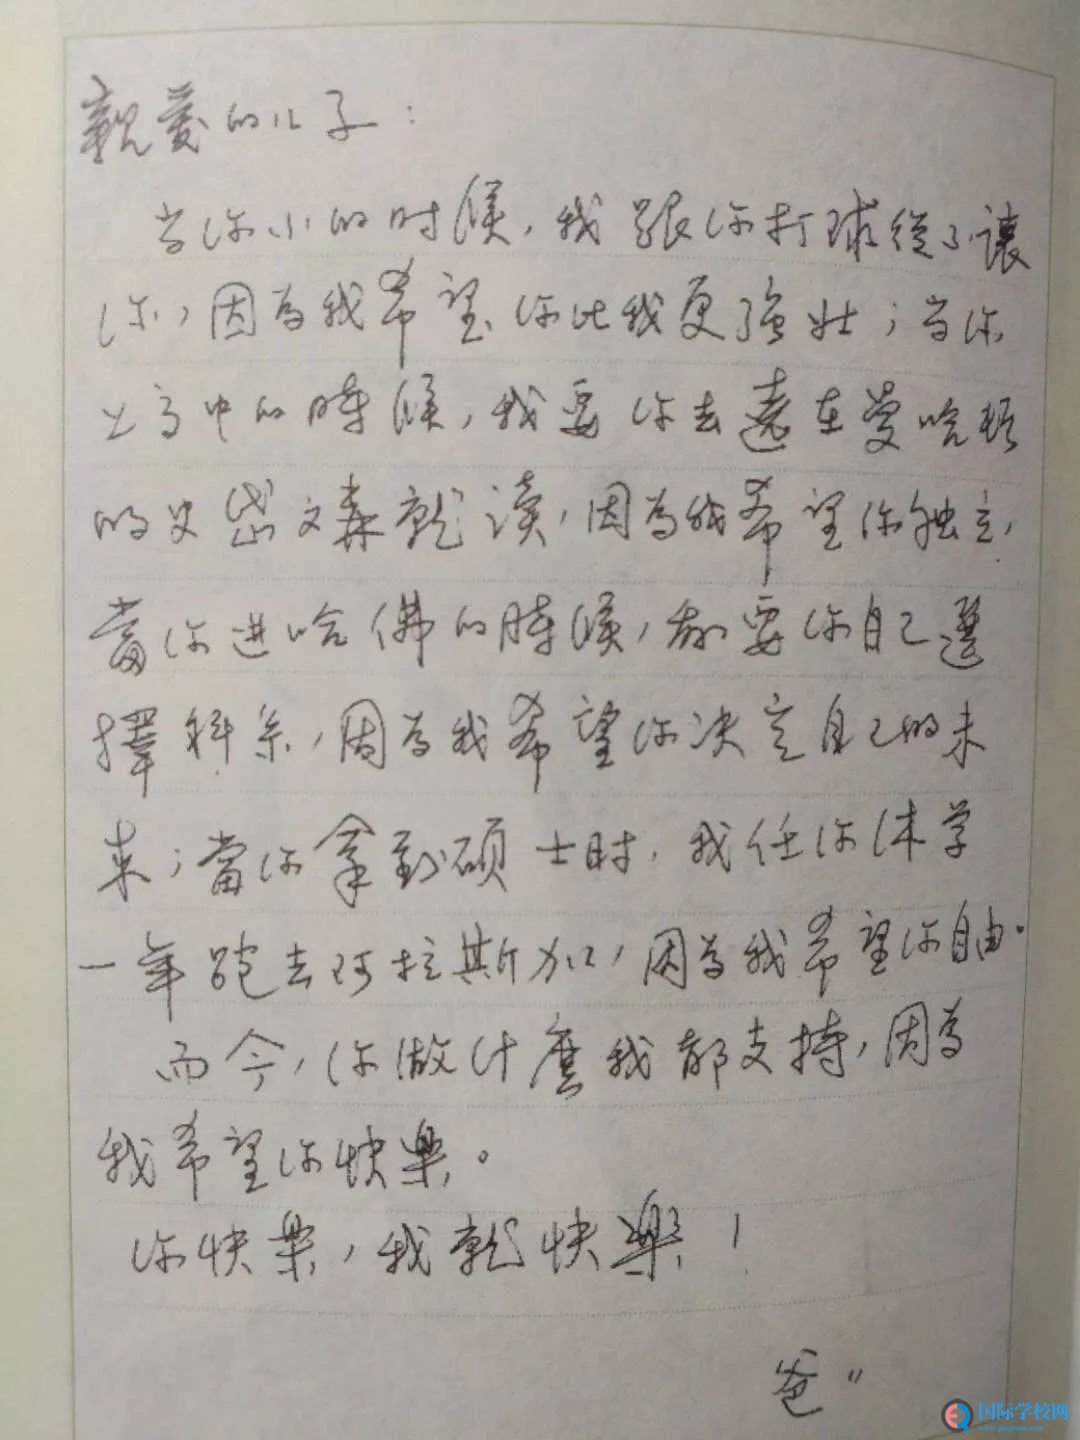 親爱的儿子：
当你小的时候，我跟你打球從不讓
你，因为我希望你比我更强壮；当你
上高中的時候，我要你去遠在曼哈顿
的史岱文森就读，因为我希望你独立，
當你进哈佛的時候，我要你自己選
擇科系，因为我希望你决定自己的未
来；當你拿到硕士时，我任你休学
一年跑去阿拉斯加，因为我希望你自由。
而今，你做什麼我都支持，因为
我希望你快樂。
你快樂，我就快樂！
爸〃
国际学校网